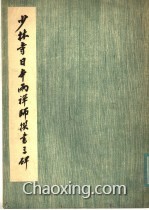 少林寺日本两禅师撰书三碑
Chaoxing.com